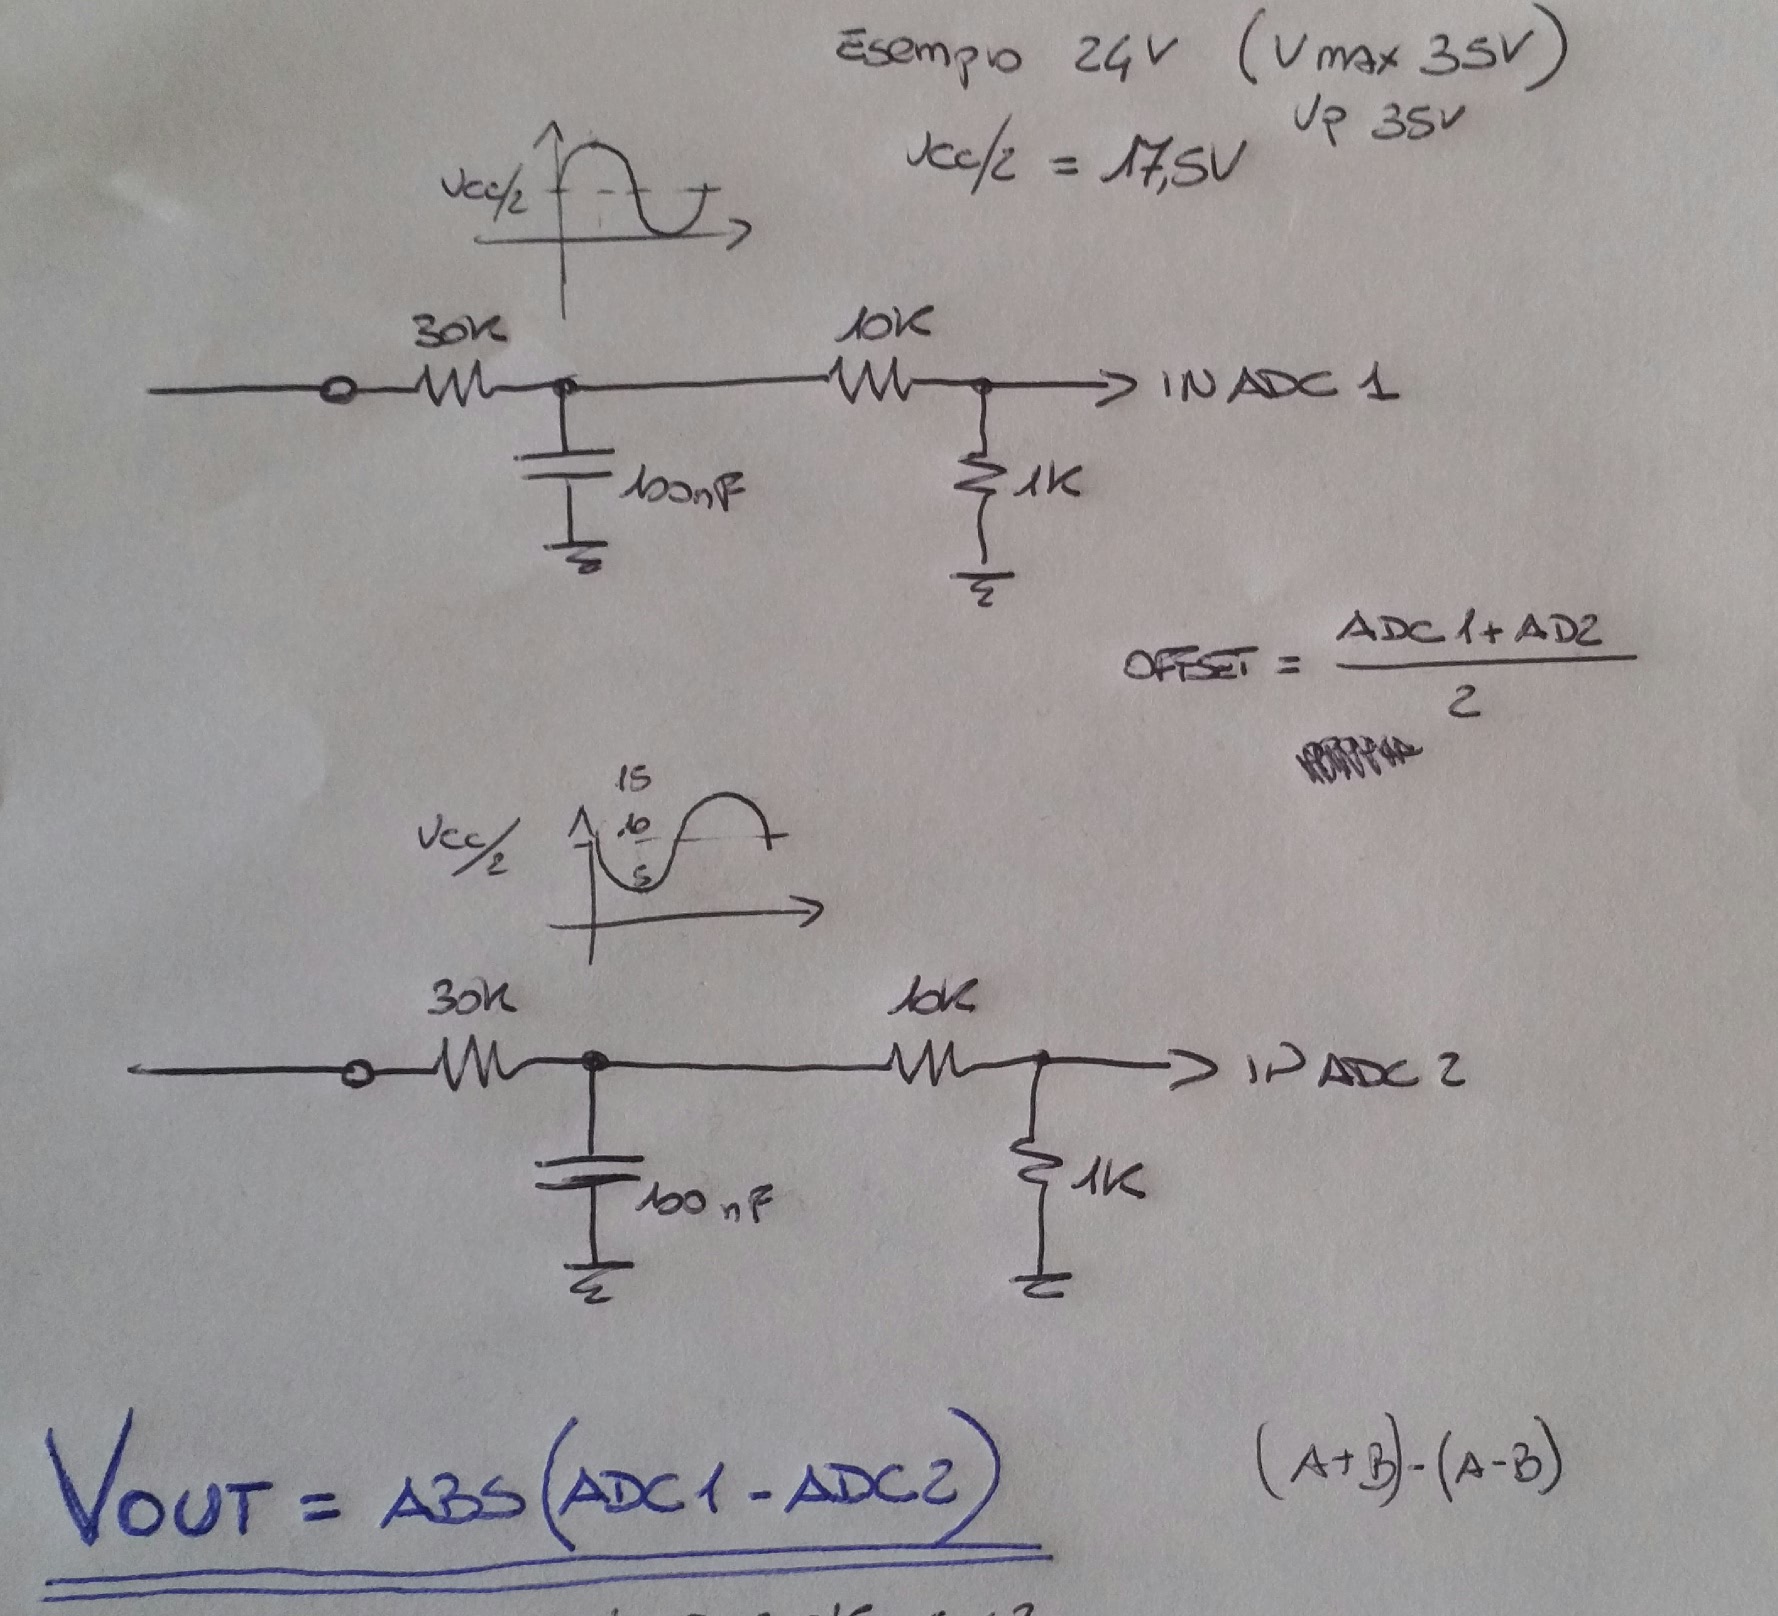 Esempio 24V (Vmax 35V)
Vp 35V
Vcc/2 = 17,5V
Vcc/2
30K
10K
IN ADC 1
100nF
1K
OFFSET = ADC1+AD2
2
15
10
Vcc/2
5
30K
10K
IN ADC 2
100nF
1K
VOUT = ABS(ADC1-ADC2)
(A+B)-(A-B)